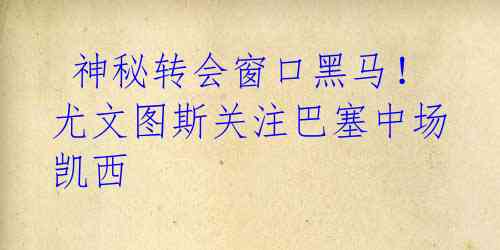 神秘转会窗口黑马！
尤文图斯关注巴塞中场
凯西